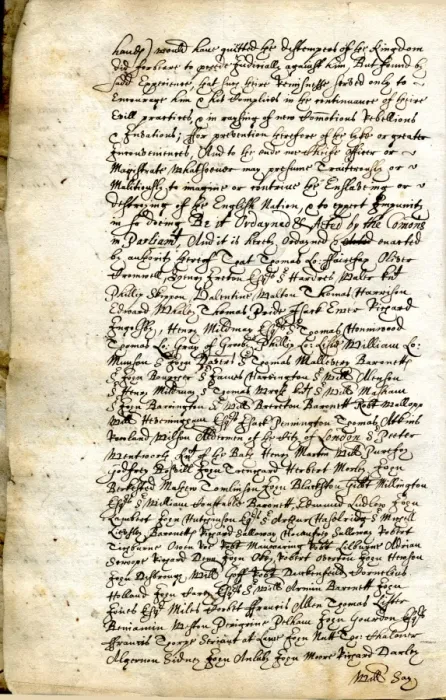 hands) would have quitted the distempers of the Kingdom
did forbeare to proceed Judicially against him But found by
sadd Experience, that such their Remissnesse served only to
Encourage him & his Complices in the continuance of their
Evill practices, & in raysing of new Comotions Rebellions
& Invasions; for prevention therefore of the like or greater
Inconveniences, And to the end noe Cheife officer or
Magistrate whatsoever may presume Traiterously or
Malitiously to imagine or contrive the Enslaving or
destroying of the English Nation, & to expect Impunity
in so doeing Be it Ordayned & Acted by the Comons
in Parliamt And it is hereby Ordayned & enacted
by authority thereof That Thomas Lo: Fairefax Oliver
Cromwell Henry Ireton Esqrs Sr Hardres Waller Knt
Phillip Skippon Valentine Walton Thomas Harrison
Edward Whaley Thomas Pride Isaack Ewer Richard
Ingelsby, Henry Mildmay Esqrs Sr Thomas Honnwood
Thomas Lo: Gray of Grooby Phillip Lo: Lisle William Lo:
Munson Sr John Sr Thomas Mallevory Barronetts
Sr John Bourcher Sr James Harrington Sr Will Alenson
Sr Henry Mildmay Sr Thomas Wroth Knts Sr Will Masham
Sr John Barrington Sr Will Brereton Baronett Robt Wallopp
Will Esqrs Isack Pennington Thomas Atkins
Rowland Wilson Aldermen of the Citty of London Sr Peeter
Wentworth Knt of the Bath Henry Martin Will Purefoy
Godfrey John Trenchard Herbert Morley John
Berksted Mathew Tomlinson John Blackston Gilbt Millington
Esqrs Sr William Constable Baronett, Edmund Ludlow John
Lambert John Hutchinson Esqrs Sr Arthur Haselridg Sr
Barronetts Richard Salloway Humfrey Salloway Robert
Titchburne Owen Roe Robt Manwaring Robt Lilburne Adrian
Scroope Richard Dean John Okey Robert Overton John
John Desbrowe Will Goff Robt Duckenfeild Cornelius
Holland John Esqrs Sr Will Armin Barronett John
Jones Esqr Miles Corbet Francis Allen Thomas Lister
Benjamin Weston Peregrine Pelham John Gourdon Esqrs
Francis Thorpe Serjant at Lawe John Nutt Tho: Chaloner
Algernon Sidney John Anlaby John Moore Richard Darley
Will Say